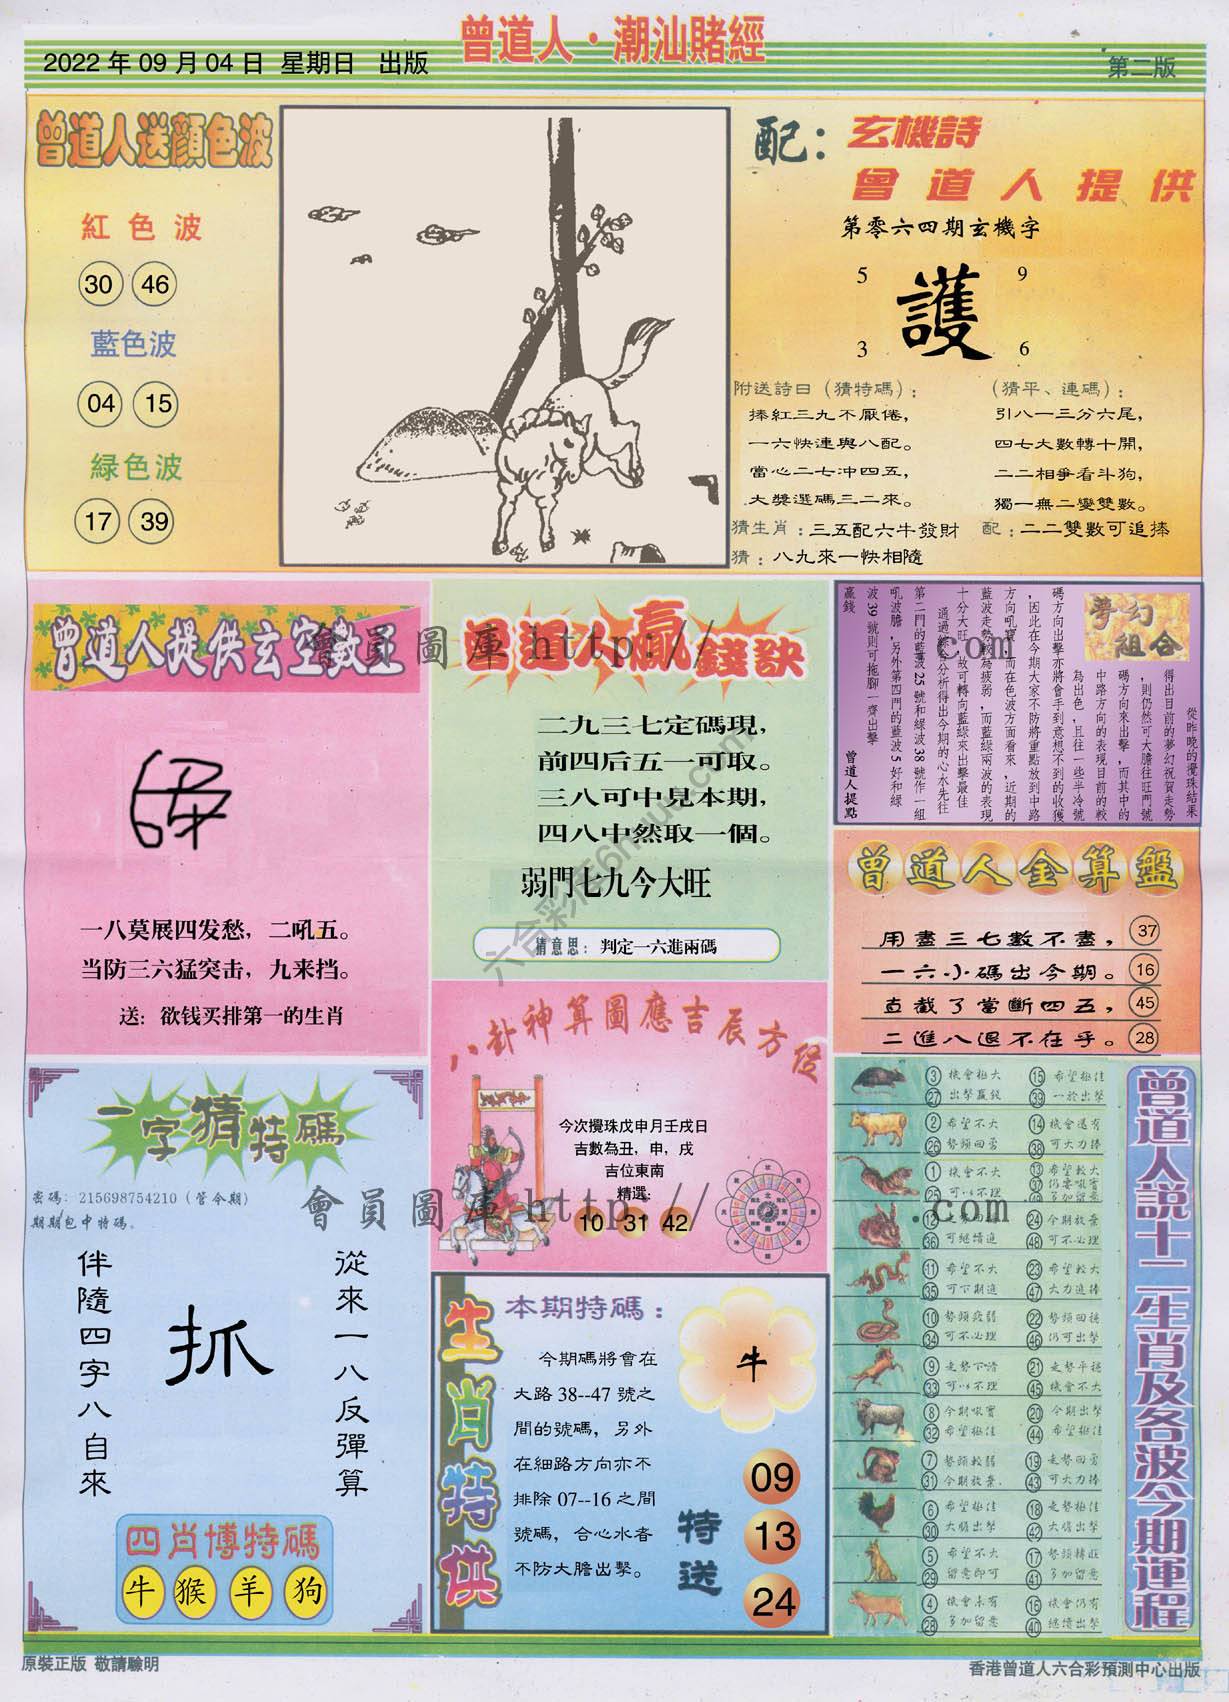 曾道人·潮汕賭經
2022 年 09 月 04 日 星期日 出版
第二版
曾道人送顏色波
紅色波
30 46
藍色波
04 15
綠色波
17 39
配：玄機詩
曾道人提供
第零六四期玄機字
5 9
護
3 6
附送詩曰（猜特碼）：
捧紅三九不厭倦，
一六快連與八配。
當心二七沖四五，
大獎選碼三二來。
（猜平、連碼）：
引八一三分六尾，
四七大數轉十開，
二二相爭看斗狗，
獨一無二變雙數。
猜生肖：三五配六牛發財
配：二二雙數可追捧
猜：八九來一快相隨
曾道人提供玄空數王
一八莫展四发愁，二吼五。
当防三六猛突击，九来挡。
送：欲钱买排第一的生肖
曾道人贏錢訣
二九三七定碼現，
前四后五一可取。
三八可中見本期，
四八中然取一個。
弱門七九今大旺
猜意思：判定一六進兩碼
夢幻組合
從昨晚的攪珠結果
得出目前的夢幻祝賀走勢
，則仍然可大膽往旺門號
碼方向來出擊，而其中的
中路方向的表現目前的較
為出色，且往一些半冷號
碼方向出擊亦將會手到意想不到的收獲
，因此在今期大家不防將重點放到中路
方向吼寶，而在色波方面看來，近期的
藍波走勢較為疲弱，而藍綠兩波的表現
十分大旺，故可轉向藍綠來出擊最佳
通過綜合分析得出今期的心水先往
第二門的藍波 25 號和綠波 38 號作一組
吼波膽，另外第四門的藍波 5 好和綠
波 39 號則可拖腳一齊出擊
贏錢
曾道人提點
曾道人金算盤
用盡三七數不盡， 37
一六小碼出今期。 16
直截了當斷四五， 45
二進八退不在乎。 28
八卦神算圖應吉辰方位
今次攪珠戊申月壬戌日
吉數為丑，申，戌
吉位東南
精選：
10 31 42
一字猜特碼
密碼：215698754210（管今期）
期期包中特碼。
從來一八反彈算
抓
伴隨四字八自來
四肖博特碼
牛 猴 羊 狗
生肖特供
本期特碼：
今期碼將會在
大路 38--47 號之
間的號碼，另外
在細路方向亦不
排除 07--16 之間
號碼，合心水者
不防大膽出擊。
牛
特送
09
13
24
曾道人説十二生肖及各波今期運程
3 機會極大 15 希望極佳
27 出擊贏錢 39 一於出擊
2 希望不大 14 機會還有
26 勢頭回勇 38 可大力捧
1 機會不大 13 希望較大
25 可以不理 37 仍要吼實
49 多加留意
12 走勢回 24 今期放棄
36 可繼續追 48 可不必理
11 希望不大 23 希望較大
35 可下期追 47 大力追捧
10 勢頭疲弱 22 勢頭回穩
34 可不必理 46 仍可出擊
9 走勢下滑 21 走勢平穩
33 可以不理 45 機會不大
8 今期吼實 20 今期出擊
32 希望極佳 44 希望極佳
7 勢頭較弱 19 走勢回勇
31 今期放棄 43 可大力捧
6 希望極佳 18 走勢極佳
30 大膽出擊 42 大膽出擊
5 希望不大 17 勢頭轉旺
29 留意即可 41 多加留意
4 機會未有 16 機會仍有
28 多加留意 40 繼續出擊
會員圖庫 http:// .com
會員圖庫 http:// .com
原裝正版 敬請驗明
香港曾道人六合彩預測中心出版